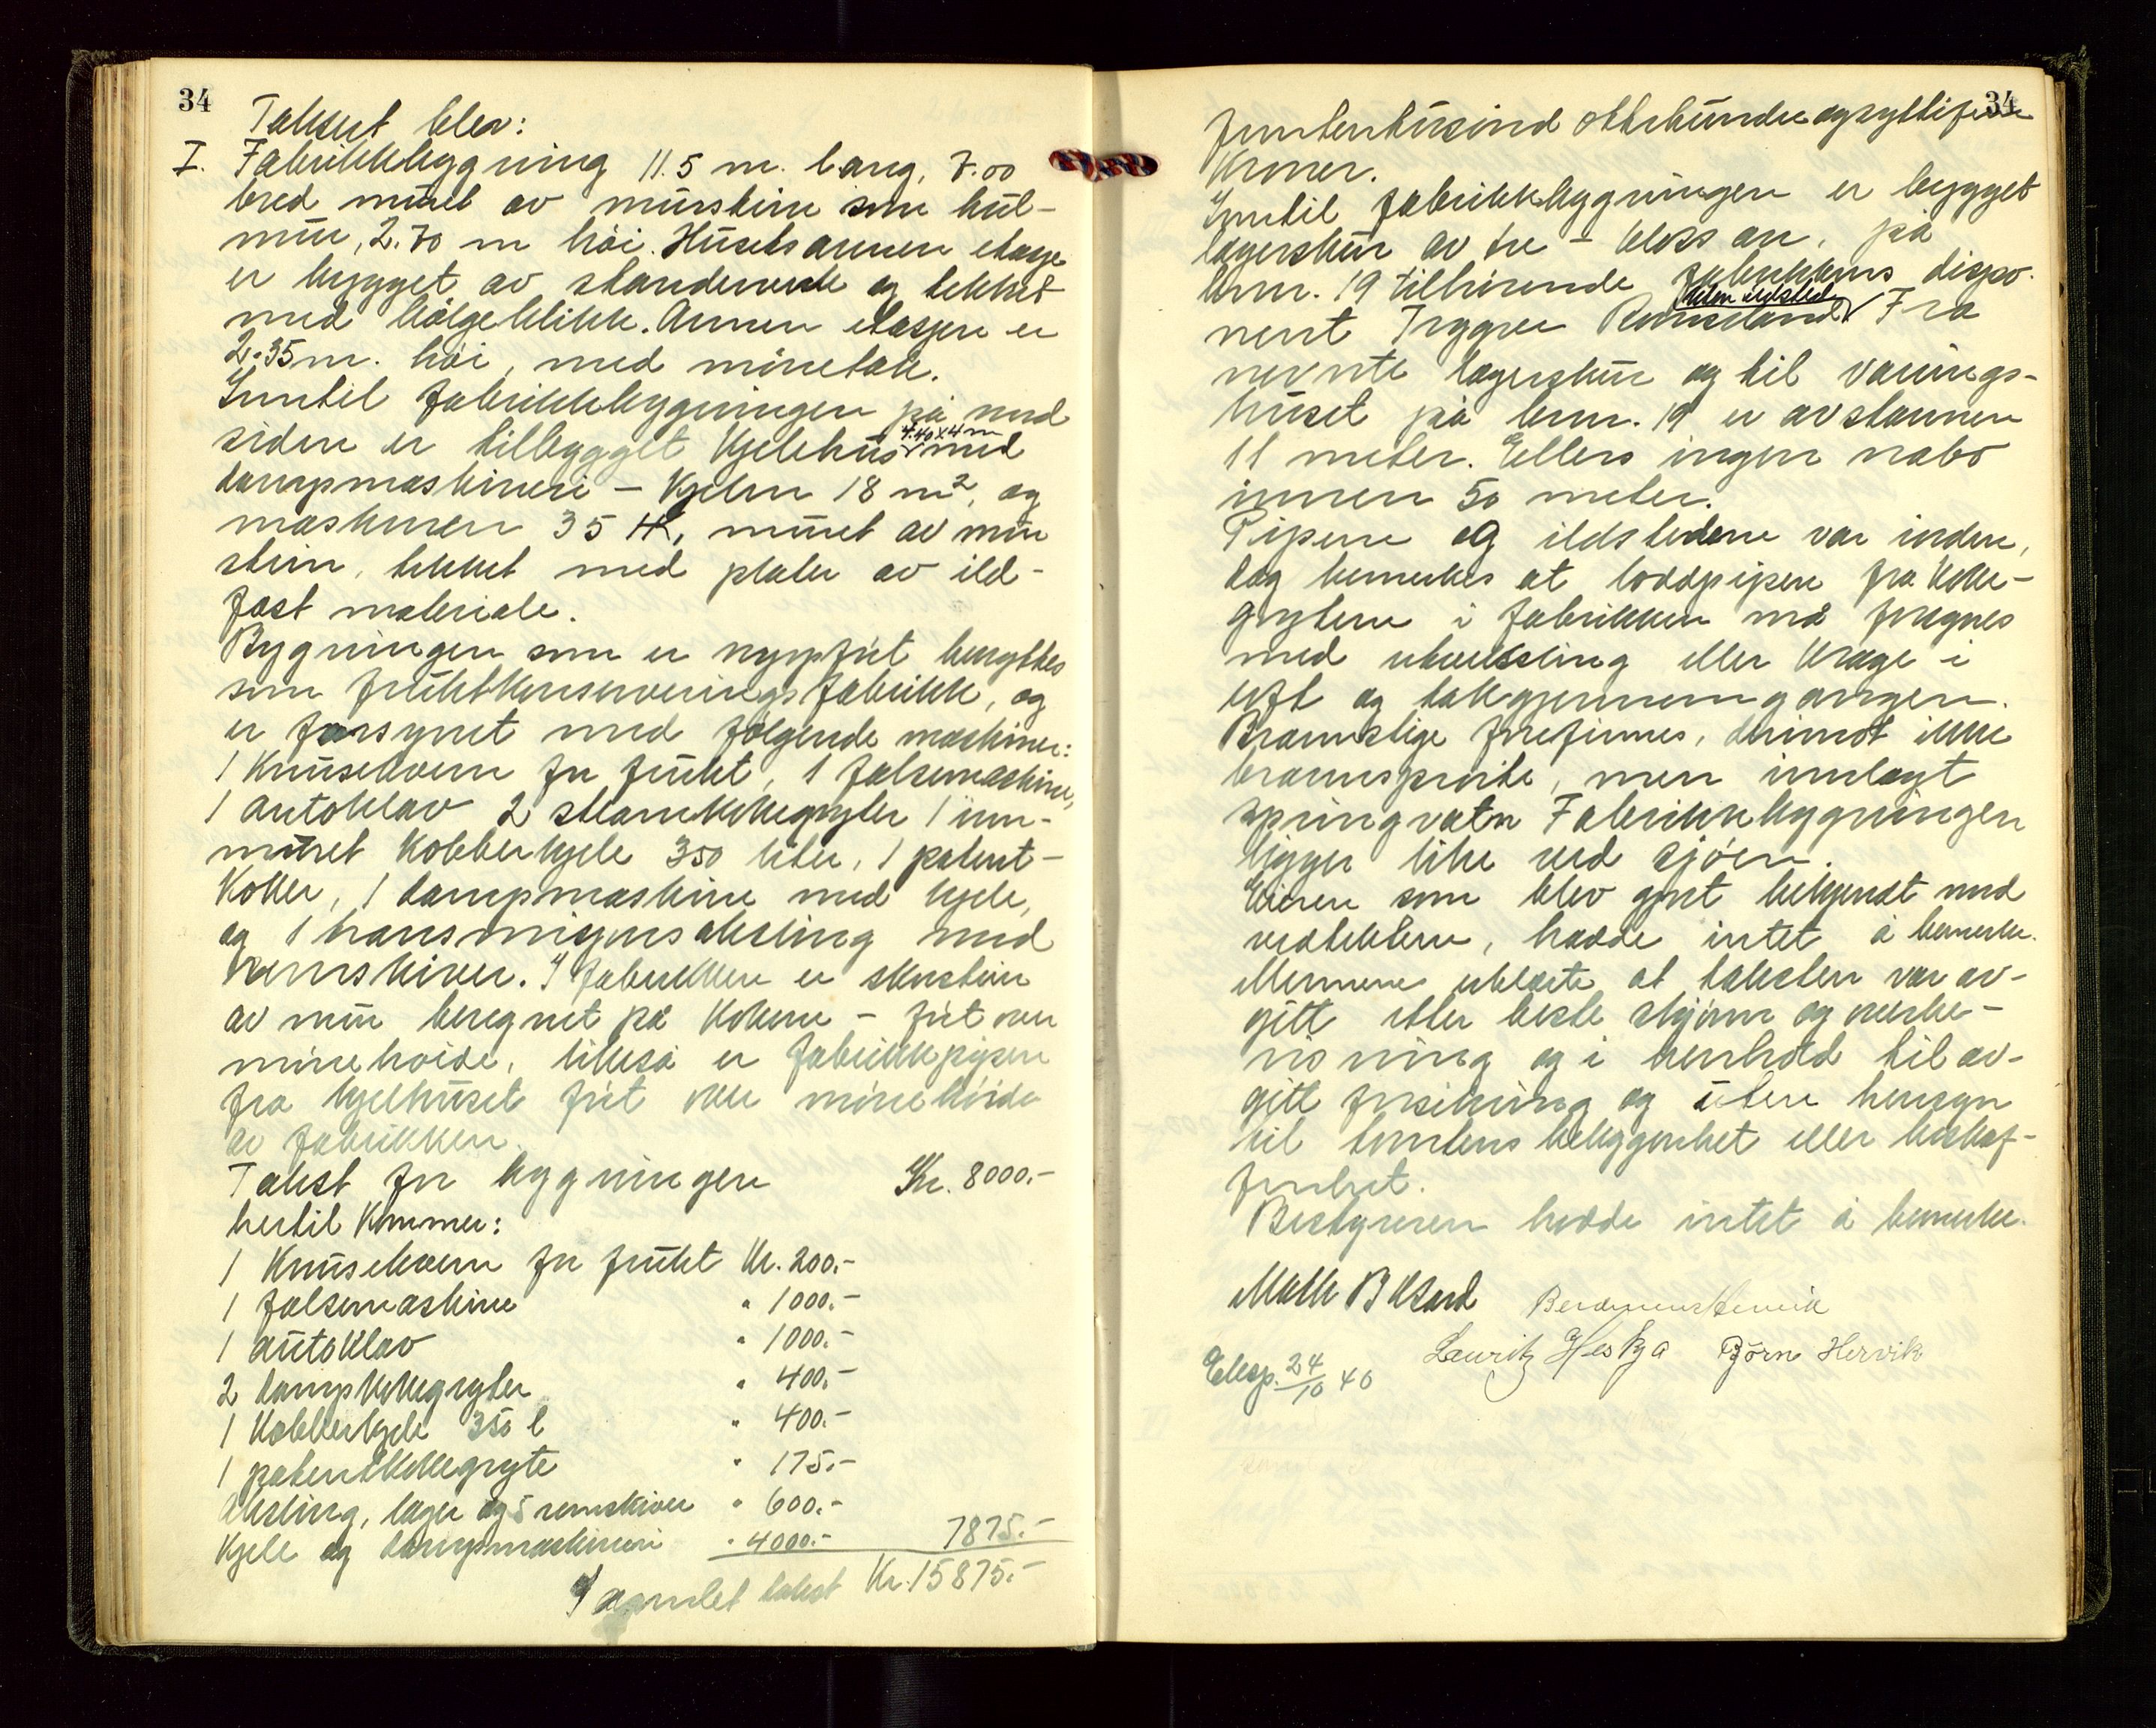 34
Taksert blev:
I. Fabrikkbygning 11.5 m. lang, 7.00
bred muret av murstein som hul-
mur, 2.70 m høi. Husets annen etasje
er bygget av standerverk og tekket
med bølgeblikk. Annen etasjen er
2.35 m. høi, med mønetak.
Inntil fabrikkbygningen på nord
siden er tilbygget kjelehus 4.40 x 4 m med
dampmaskineri – kjelen 18 m², og
maskinen 35 HK, muret av mur
stein, tekket med plater av ild-
fast materiale.
Bygningen som er nyopført benyttes
som fruktkonserveringsfabrikk, og
er forsynet med følgende maskiner:
1 knusekvern for frukt, 1 falsemaskine,
1 autoklav 2 kokegryter 1 inn-
muret kobberkjele 350 liter, 1 patent-
koker, 1 dampmaskine med kjele,
og 1 transmisjonsaksling med
remskiver. I fabrikken er skorstein
av mur beregnet på kokerne – ført over
mønehøide, likeså er fabrikkpipen
fra kjelhuset ført over mønehøide
av fabrikken.
Takst for bygningen Kr. 8000.-
hertil kommer:
1 knusekvern for frukt Kr. 200.-
1 falsemaskine " 1000.-
1 autoklav " 1000.-
2 dampkokegryter " 400.-
1 kobberkjele 350 l " 400.-
1 patentkokegryte " 175.-
Aksling, lager og 5 remskiver " 600.-
Kjele og dampmaskineri " 4000.- 7875.-
Samlet takst Kr. 15875.-
34
femtentusind ottehundreogsyttifem
kroner.
Inntil fabrikkbygningen er bygget
lagerskur av tre – på
brnr. 19 tilhørende fabrikkens dispo-
nent Trygve uten ildsted Fra
nevnte lagerskur og til vånings-
huset på brnr. 19 er avstannen
11 meter. Ellers ingen nabo
innen 50 meter.
Pipene og ildstedene var i orden,
dog bemerkes at loddpipen fra koke-
grytene i fabrikken må forsynes
med utveksling eller krage i
loft og takgjennemgangen.
Brannstige forefinnes, derimot ikke
brannsprøite, men innlagt
springvatn Fabrikkbygningen
ligger like ved sjøen.
Eieren som blev gjort bekjendt med
vedtektene, hadde intet å bemerke.
Mennene erklærte at taksten var av-
gitt efter beste skjønn og overbe-
visning og i henhold til av-
gitt forsikring og uten hensyn
til tomtens beliggenhet eller beskaf-
fenhet.
Bestyreren hadde intet å bemerke.
Lauritz Hesby Bjørn Hervik
Eksp. 24/10 40